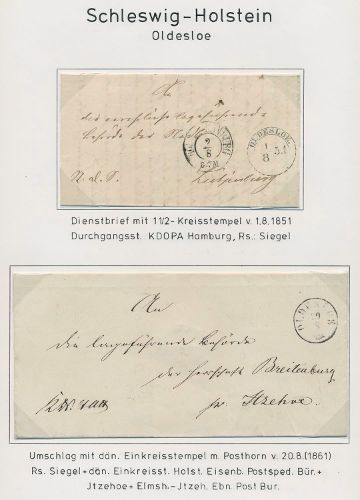 Schleswig-Holstein
Oldesloe
An
die
behörde der Stadt
OLDESLOE.
1
8 51
2
8
Lütjenburg
Dienstbrief mit 11/2-Kreisstempel v. 1.8.1851
Durchgangsst. KDOPA Hamburg, Rs.: Siegel
An
die lagerführende Behörde
der Herrschaft Breitenburg
pr Itzehoe
OLDESLOE
20
8
Umschlag mit dän. Einkreisstempel m. Posthorn v. 20.8.(1861)
Rs. Siegel+dän. Einkreisst. Holst. Eisenb. Postsped. Bür.+
Jtzehoe+Elmsh.-Jtzeh. Ebn. Post Bur.